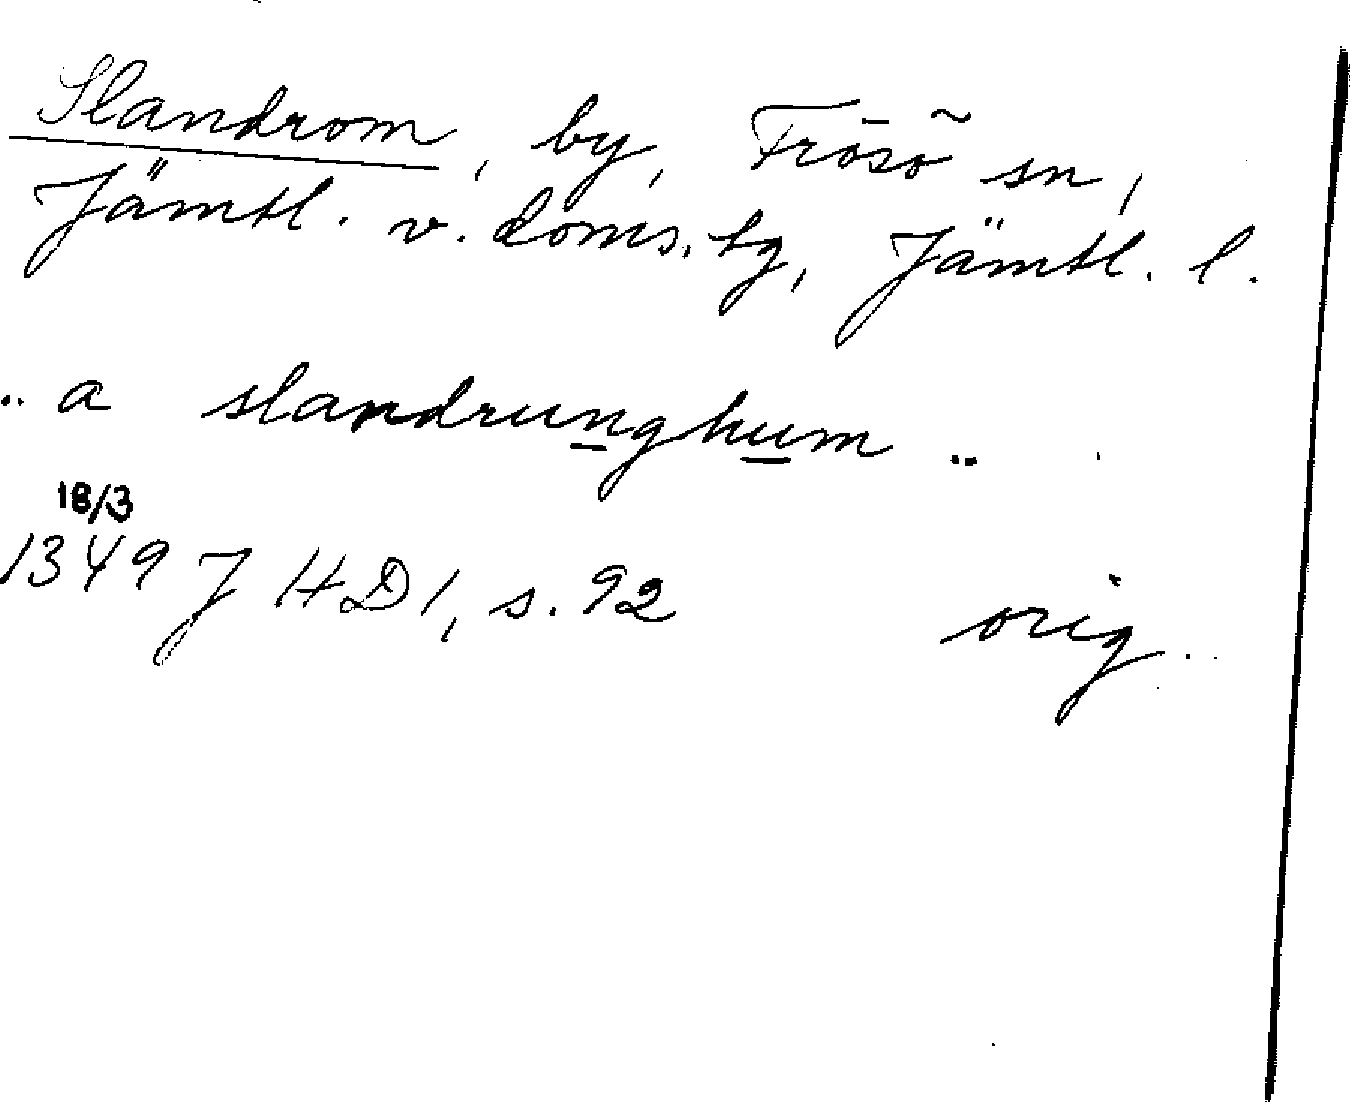 Slandrom, by, Frösö sn,
Jämtl. v. doms. tg, Jämtl. l.
.. a slandrunghum ..
18/3
1349 J H D 1, s. 92 orig.